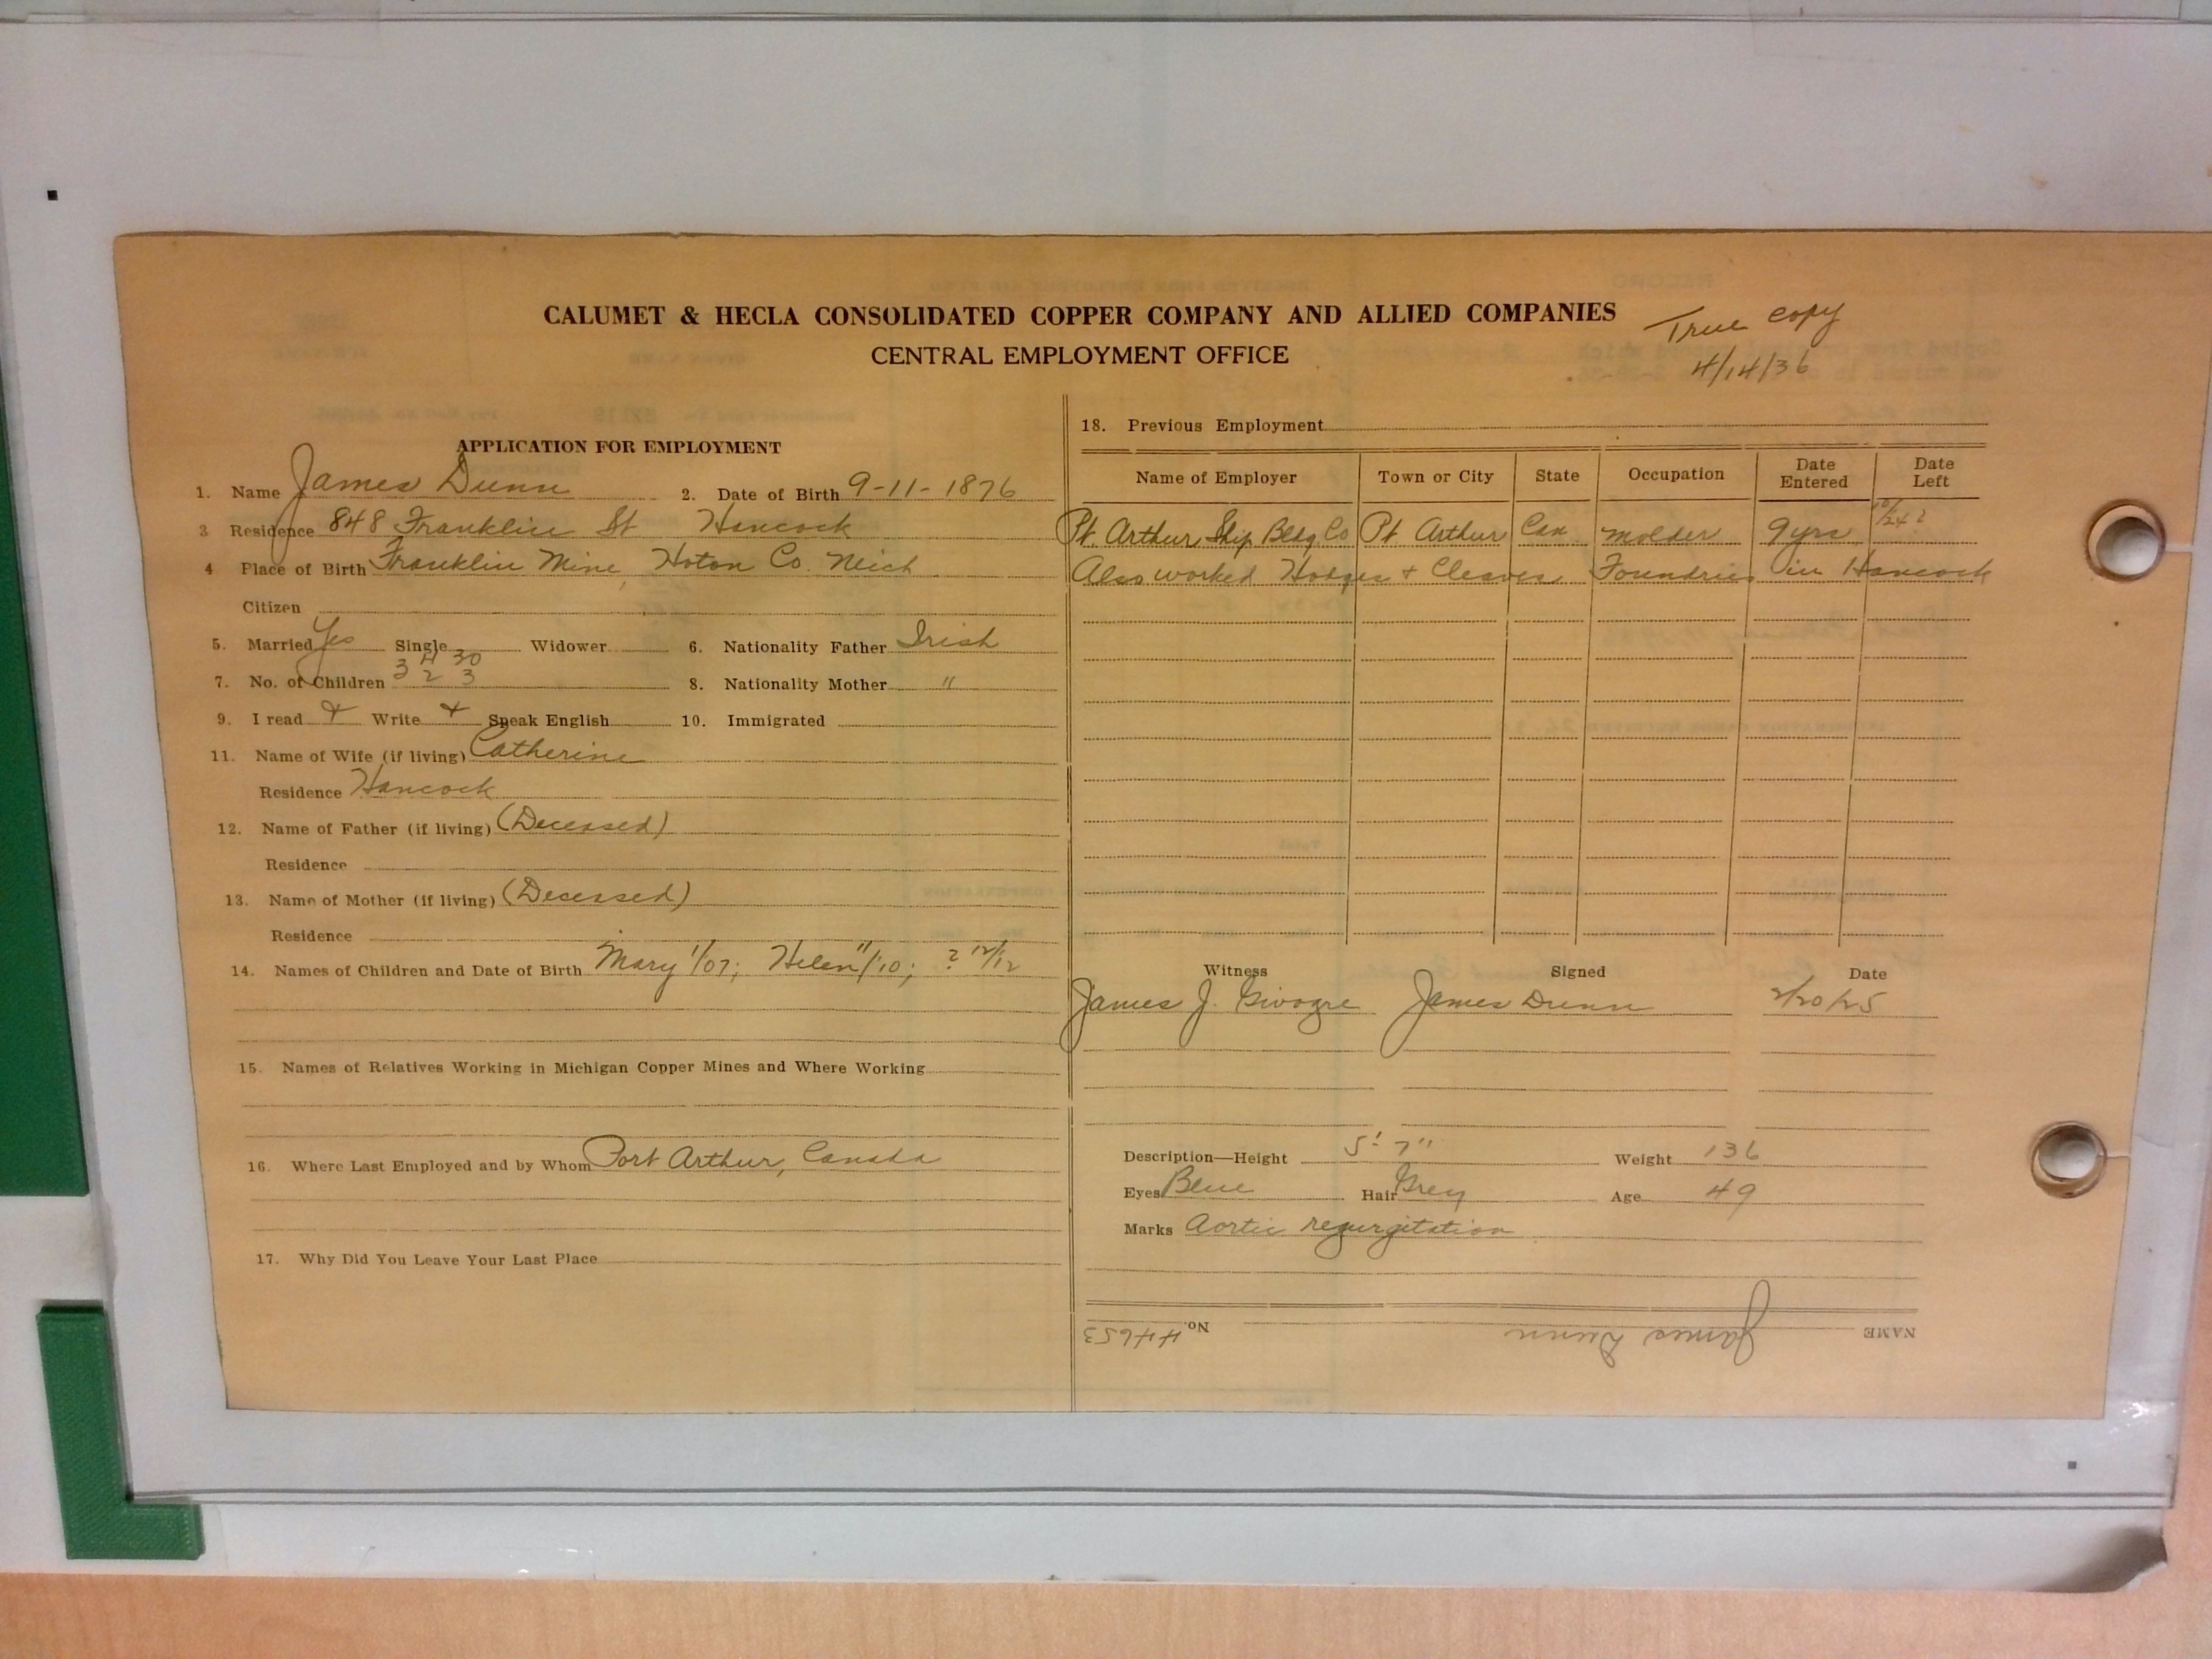 CALUMET & HECLA CONSOLIDATED COPPER COMPANY AND ALLIED COMPANIES
CENTRAL EMPLOYMENT OFFICE
True copy
4/14/36
APPLICATION FOR EMPLOYMENT
1. Name James Dunn 2. Date of Birth 9-11-1876
3 Residence 848 Franklin St Hancock
4 Place of Birth Franklin Mine, Hoton Co. Mich
Citizen
5. Married Yes Single Widower 6. Nationality Father Irish
3 4 30
7. No. of Children 2 3 8. Nationality Mother "
9. I read + Write + Speak English 10. Immigrated
11. Name of Wife (if living) Catherine
Residence Hancock
12. Name of Father (if living) (Deceased)
Residence
13. Name of Mother (if living) (Deceased)
Residence
14. Names of Children and Date of Birth Mary 1/07; Helen 11/10; ? 12/12
15. Names of Relatives Working in Michigan Copper Mines and Where Working
16. Where Last Employed and by Whom Port Arthur, Canada
17. Why Did You Leave Your Last Place
18. Previous Employment
Name of Employer Town or City State Occupation Date Entered Date Left
Pt. Arthur Ship Bldg Co Pt Arthur Can molder 9 yrs 10/24?
Also worked Hodges + Cleaves Foundries in Hancock
Witness Signed Date
James J. James Dunn 2/20/25
Description—Height 5' 7" Weight 136
Eyes Blue Hair Grey Age 49
Marks Aortic regurgitation
NAME James Dunn No. 44653